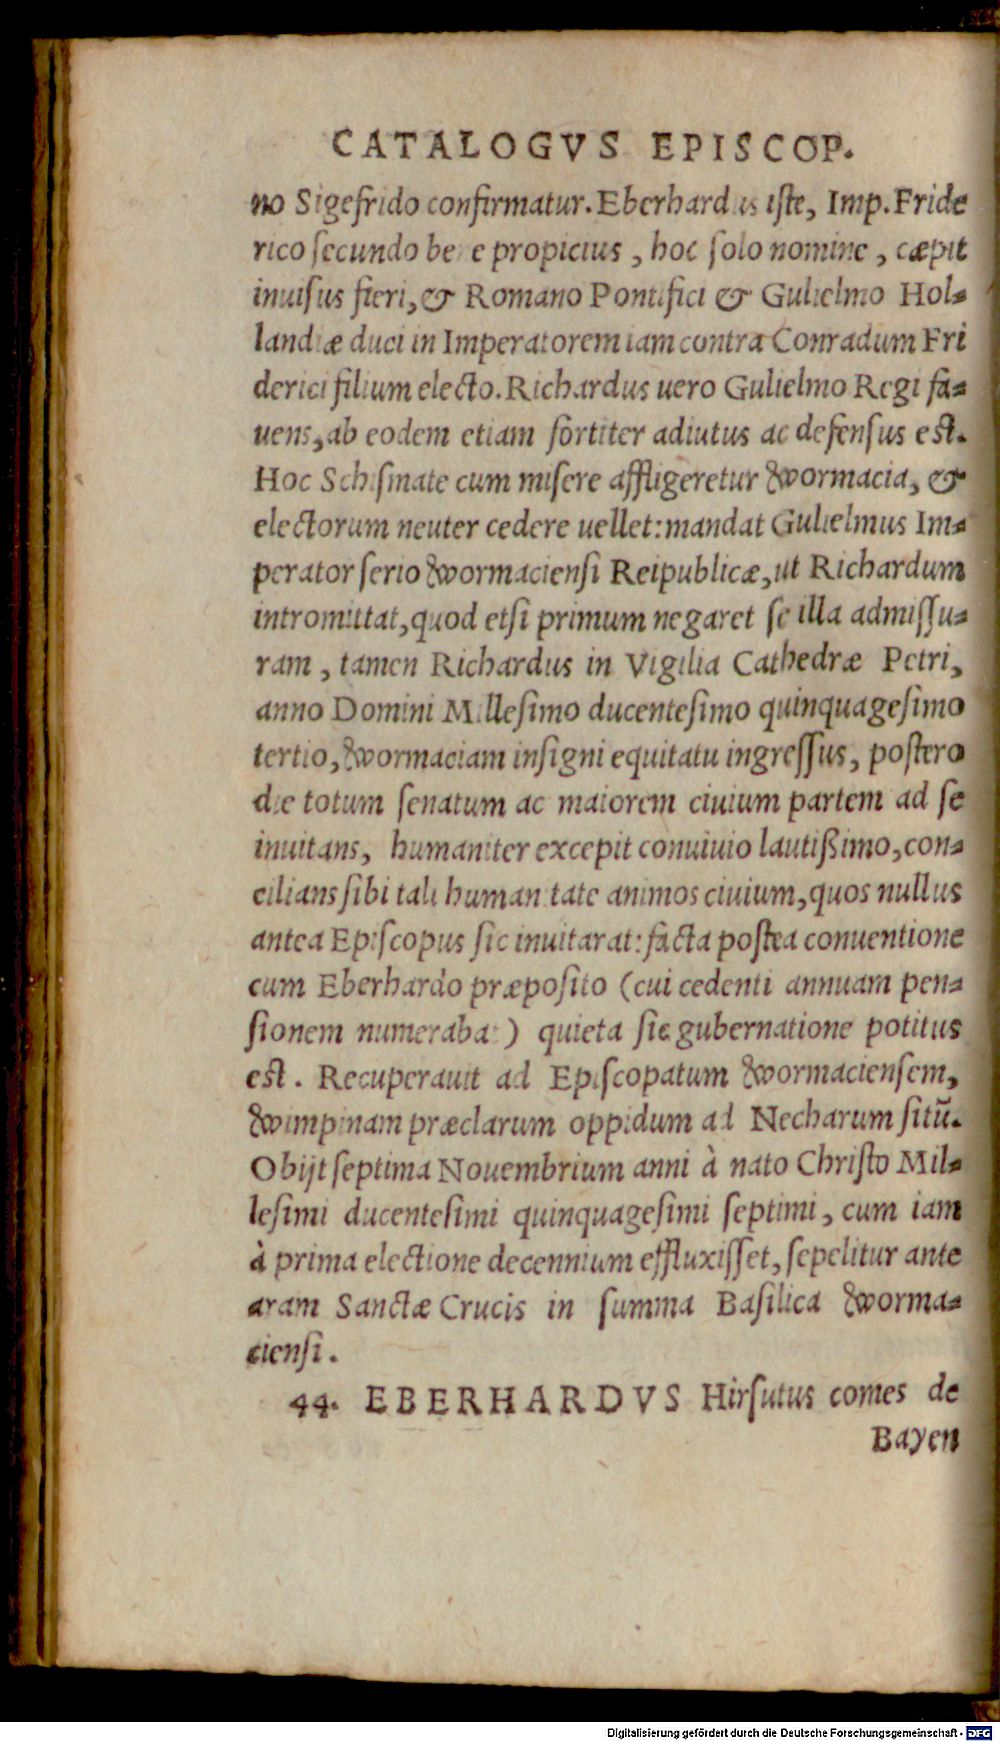 CATALOGVS EPISCOP.
no Sigefrido confirmatur. Eberhardus iſte, Imp. Fride
rico ſecundo bene propicius, hoc ſolo nomine, cæpit
inuiſus fieri, & Romano Pontifici & Gulielmo Hol-
landiæ duci in Imperatorem iam contra Conradum Fri
derici filium electo. Richardus uero Gulielmo Regi fa-
uens, ab eodem etiam fortiter adiutus ac defenſus eſt.
Hoc Schiſmate cum miſere affligeretur Wormacia, &
electorum neuter cedere uellet: mandat Gulielmus Im-
perator ſerio Wormacienſi Reipublicæ, ut Richardum
intromittat, quod etſi primum negaret ſe illa admiſſu-
ram, tamen Richardus in Vigilia Cathedræ Petri,
anno Domini Milleſimo ducenteſimo quinquageſimo
tertio, Wormaciam inſigni equitatu ingreſſus, poſtero
die totum ſenatum ac maiorem ciuium partem ad ſe
inuitans, humaniter excepit conuiuio lautißimo, con-
cilians ſibi tali humanitate animos ciuium, quos nullus
antea Epiſcopus ſic inuitarat: facta poſtea conuentione
cum Eberhardo præpoſito (cui cedenti annuam pen-
ſionem numerabat) quieta ſic gubernatione potitus
eſt. Recuperauit ad Epiſcopatum Wormacienſem,
Wimpinam præclarum oppidum ad Necharum ſitū.
Obijt ſeptima Nouembrium anni à nato Chriſto Mil-
leſimi ducenteſimi quinquageſimi ſeptimi, cum iam
à prima electione decennium effluxiſſet, ſepelitur ante
aram Sanctæ Crucis in ſumma Baſilica Worma-
cienſi.
44. EBERHARDVS Hirſutus comes de
Bayen
Digitalisierung gefördert durch die Deutsche Forschungsgemeinschaft - DFG